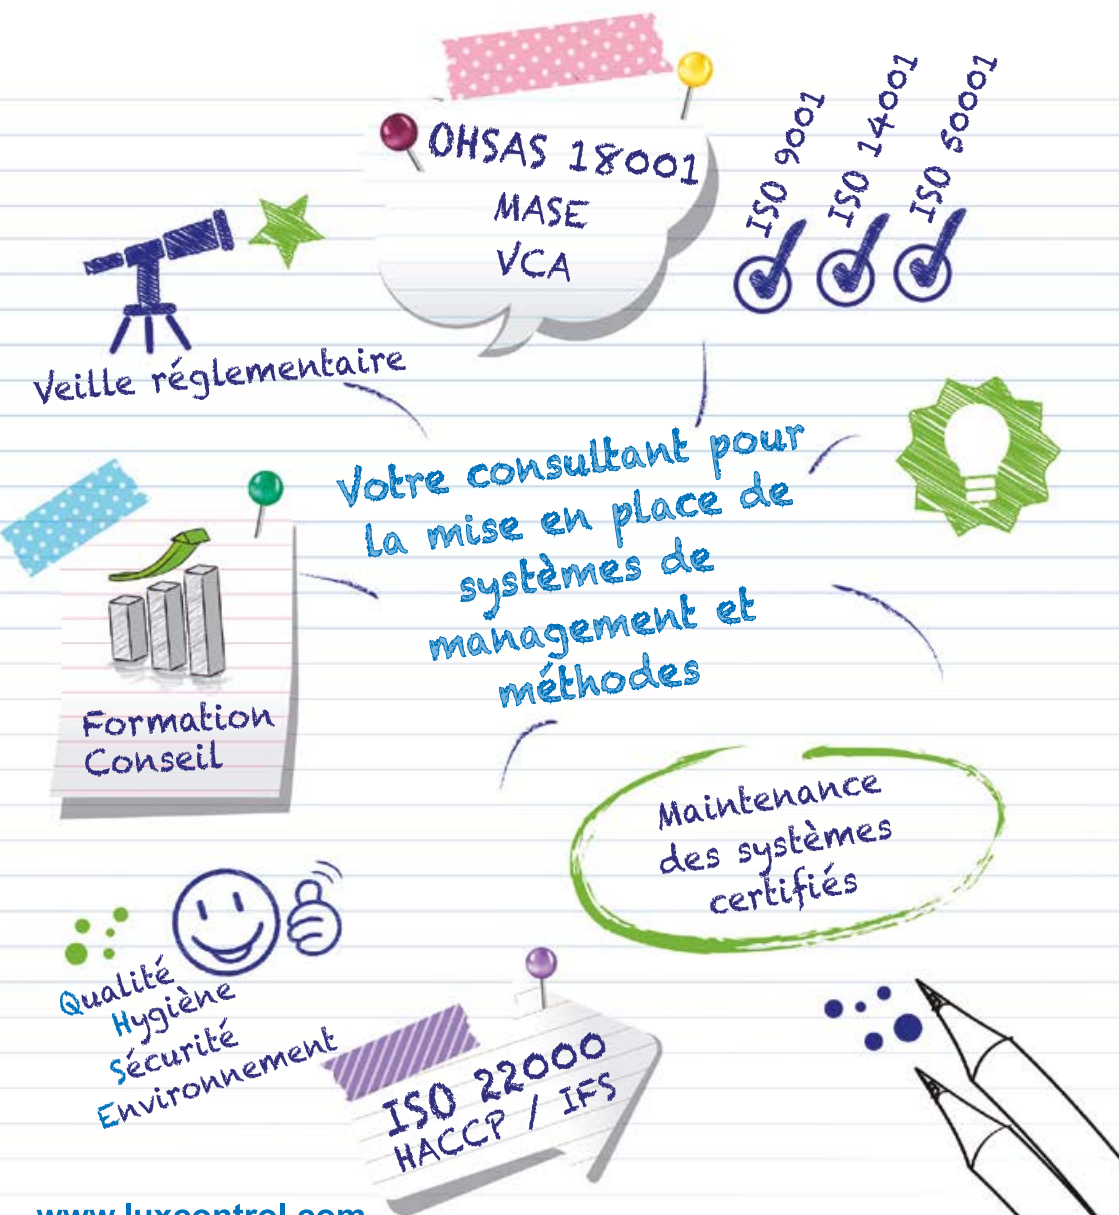 OHSAS 18001
MASE
VCA
ISO 9001
ISO 14001
ISO 50001
Veille réglementaire
Votre consultant pour
la mise en place de
systèmes de
management et
méthodes
Formation
Conseil
Maintenance
des systèmes
certifiés
Qualité
Hygiène
Sécurité
Environnement
ISO 22000
HACCP / IFS
www.luxcontrol.com